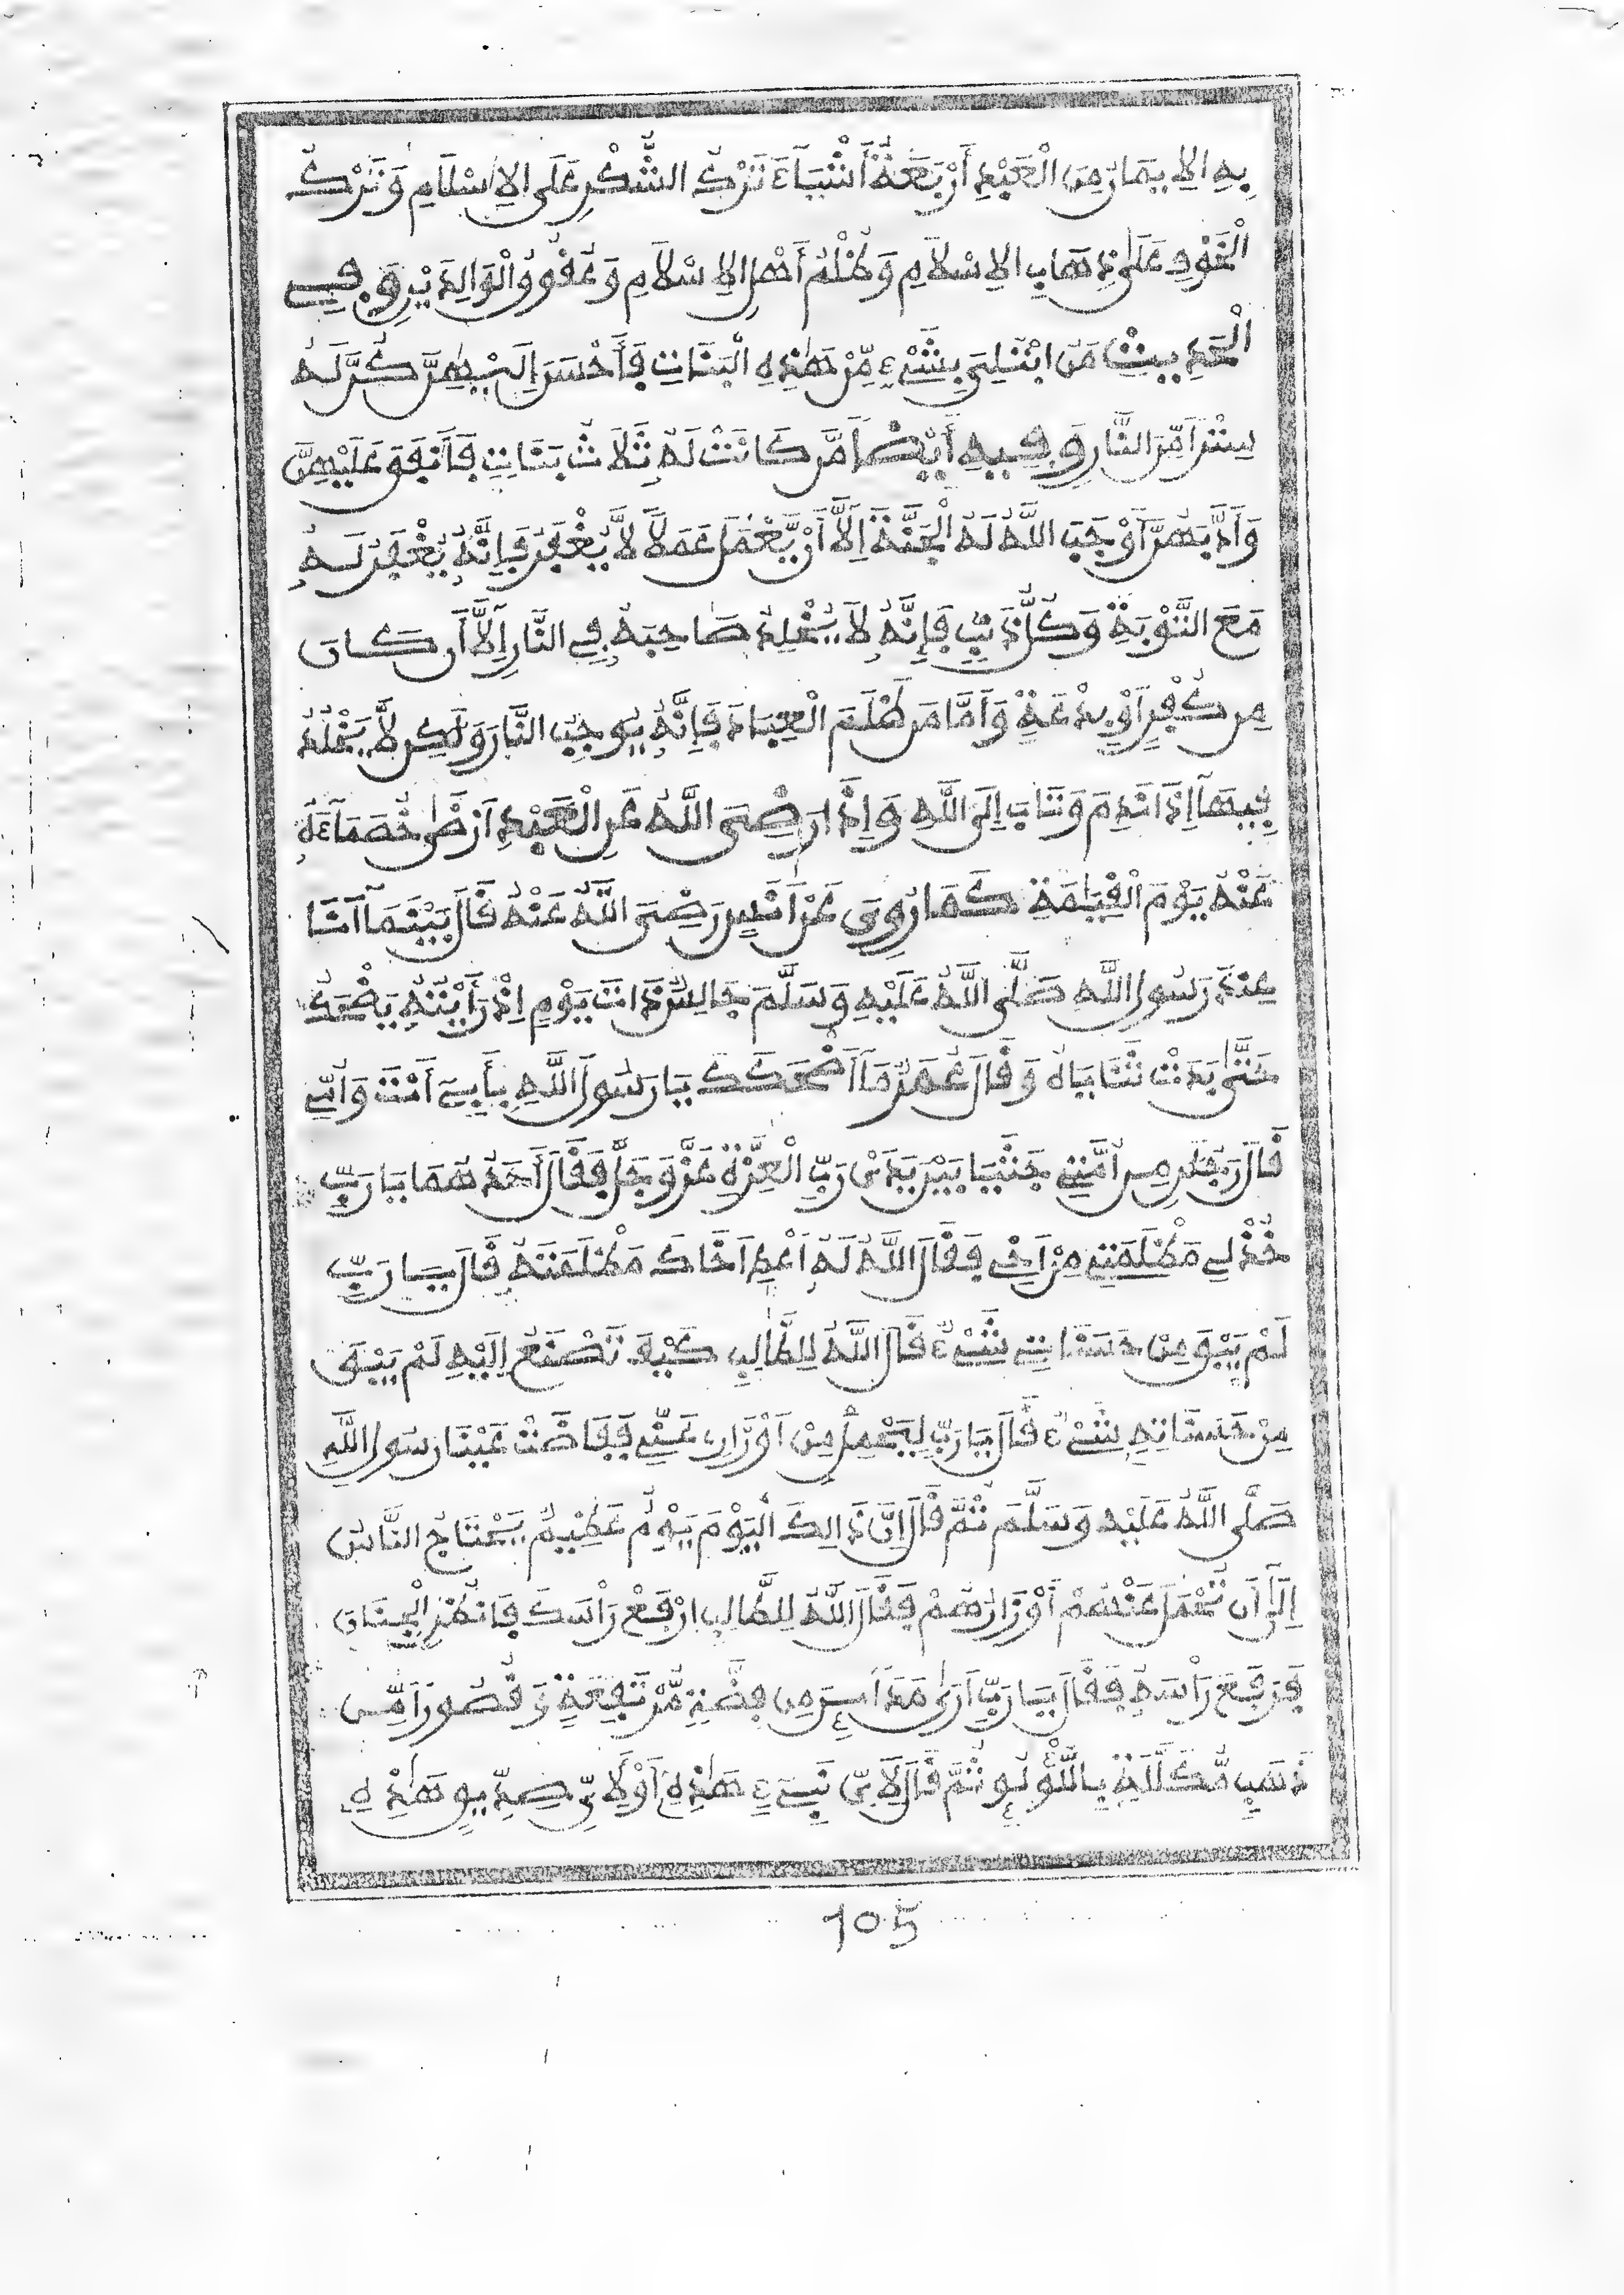 بِهِ الِايمَانُ مِنَ الْعَبْدِ أَرْبَعَةُ أَشْيَآءَ تَرْكُ الشُّكْرِ عَلَى الِاسْلَامِ وَتَرْكُ
الْخَوْفِ عَلَى ذَهَابِ الِاسْلَامِ وَظُلْمُ أَهْلِ الِاسْلَامِ وَعُقُوقُ الْوَالِدَيْنِ وَفِي
الْحَدِيثِ مَنِ ابْتُلِيَ بِشَيْءٍ مِّنْ هَٰذِهِ الْبَنَاتِ فَأَحْسَنَ إِلَيْهِنَّ كُنَّ لَهُ
سِتْرًا مِّنَ النَّارِ وَفِيهِ أَيْضًا مَّن كَانَتْ لَهُ ثَلَاثُ بَنَاتٍ فَأَنفَقَ عَلَيْهِنَّ
وَأَدَّبَهُنَّ أَوْجَبَ اللَّهُ لَهُ الْجَنَّةَ إِلَّا أَن يَّعْمَلَ عَمَلًا لَّا يُغْفَرُ فَإِنَّهُ يُغْفَرُ لَهُ
مَعَ التَّوْبَةِ وَكُلُّ ذَنبٍ فَإِنَّهُ لَا يُخْلِدُ صَاحِبَهُ فِي النَّارِ إِلَّا أَن كَانَ
مِن كُفْرٍ أَوْ بِدْعَةٍ وَأَمَّا مَن ظَلَمَ الْعِبَادَ فَإِنَّهُ يُوجِبُ النَّارَ وَلَٰكِن لَّا يَخْلُدُ
فِيهَا إِذَا نَدِمَ وَتَابَ إِلَى اللَّهِ وَإِذَا رَضِيَ اللَّهُ عَنِ الْعَبْدِ أَرْضَىٰ خُصَمَاءَهُ
عَنْهُ يَوْمَ الْقِيَٰمَةِ كَمَا رُوِيَ عَنْ أَنَسٍ رَضِيَ اللَّهُ عَنْهُ قَالَ بَيْنَمَا أَنَا
عِندَ رَسُولِ اللَّهِ صَلَّى اللَّهُ عَلَيْهِ وَسَلَّمَ جَالِسٌ ذَاتَ يَوْمٍ إِذْ رَأَيْتُهُ يَضْحَكُ
حَتَّىٰ بَدَتْ ثَنَايَاهُ وَقَالَ عُمَرُ مَا أَضْحَكَكَ يَا رَسُولَ اللَّهِ بِأَبِي أَنتَ وَأُمِّي
قَالَ رَجُلَانِ مِنْ أُمَّتِي جَثَيَا بَيْنَ يَدَيْ رَبِّ الْعِزَّةِ عَزَّ وَجَلَّ فَقَالَ أَحَدُهُمَا يَا رَبِّ
خُذْ لِي مَظْلَمَتِي مِنْ أَخِي فَقَالَ اللَّهُ لَهُ أَعْطِ أَخَاكَ مَظْلَمَتَهُ قَالَ يَا رَبِّ
لَمْ يَبْقَ مِنْ حَسَنَاتِي شَيْءٌ قَالَ اللَّهُ لِلطَّالِبِ كَيْفَ تَصْنَعُ إِلَيْهِ لَمْ يَبْقَ
مِنْ حَسَنَاتِهِ شَيْءٌ قَالَ يَا رَبِّ لِيَحْمِلْ مِنْ أَوْزَارِي عَنِّي فَفَاضَتْ عَيْنَا رَسُولِ اللَّهِ
صَلَّى اللَّهُ عَلَيْهِ وَسَلَّمَ ثُمَّ قَالَ إِنَّ ذَالِكَ الْيَوْمَ يَوْمٌ عَظِيمٌ يَحْتَاجُ النَّاسُ
إِلَىٰ أَن تُحْمَلَ عَنْهُمْ أَوْزَارُهُمْ فَقَالَ اللَّهُ لِلطَّالِبِ ارْفَعْ رَأْسَكَ فَانظُرْ الْجِنَانَ
فَرَفَعَ رَأْسَهُ فَقَالَ يَا رَبِّ أَرَىٰ مَدَآئِنَ مِن فِضَّةٍ مُّرْتَفِعَةٍ وَقُصُورًا مِّن
ذَهَبٍ مُّكَلَّلَةٍ بِاللُّؤْلُؤِ ثُمَّ قَالَ لِأَيِّ نَبِيءٍ هَٰذِهِ أَوْ لِأَيِّ صِدِّيقٍ هَٰذِهِ
105